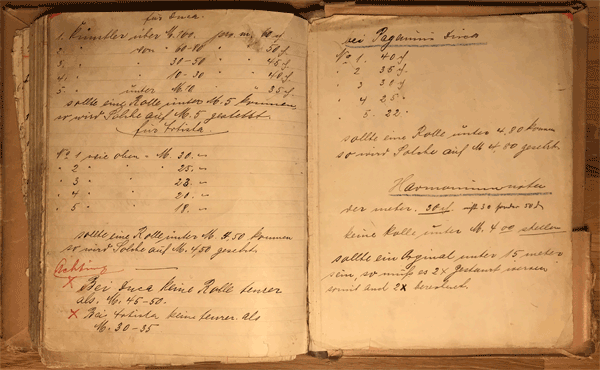 für Duca.
1. Künstler über M. 100. pro m. 60 ₰
2. " von 60-80 " 50 ₰
3. " " 30-50 " 45 ₰
4. " " 10-30 " 40 ₰
5. " unter M. 10 " 35 ₰
sollte eine Rolle unter M. 5 kommen
so wird Solche auf M. 5 gesetzt.
für Artista.
No 1 wie oben - M. 30. -
" 2 " " 25. -
" 3 " " 23. -
" 4 " " 21. -
" 5 " " 18. -
sollte eine Rolle unter M. 4,50 kommen
so wird Solche auf M. 4,50 gesetzt.
Achtung
x Bei Duca keine Rolle teurer
als M. 45-50.
x Bei Artista keine teurer als
M. 30-35
bei Paganini Duca
No 1. 40 ₰
" 2 35 ₰
" 3 30 ₰
" 4 25 "
" 5. 22 "
sollte eine Rolle unter 4,80 kommen
so wird Solche auf M 4.80 gesetzt.
Harmoniumnoten
der meter. 30 ₰ nicht 30 sonder 50 ₰
keine Rolle unter M. 4 00 stellen
sollte ein Orginal unter 15 meter
sein, so muß es 2x gestanzt werden
somit auch 2x berechnet.